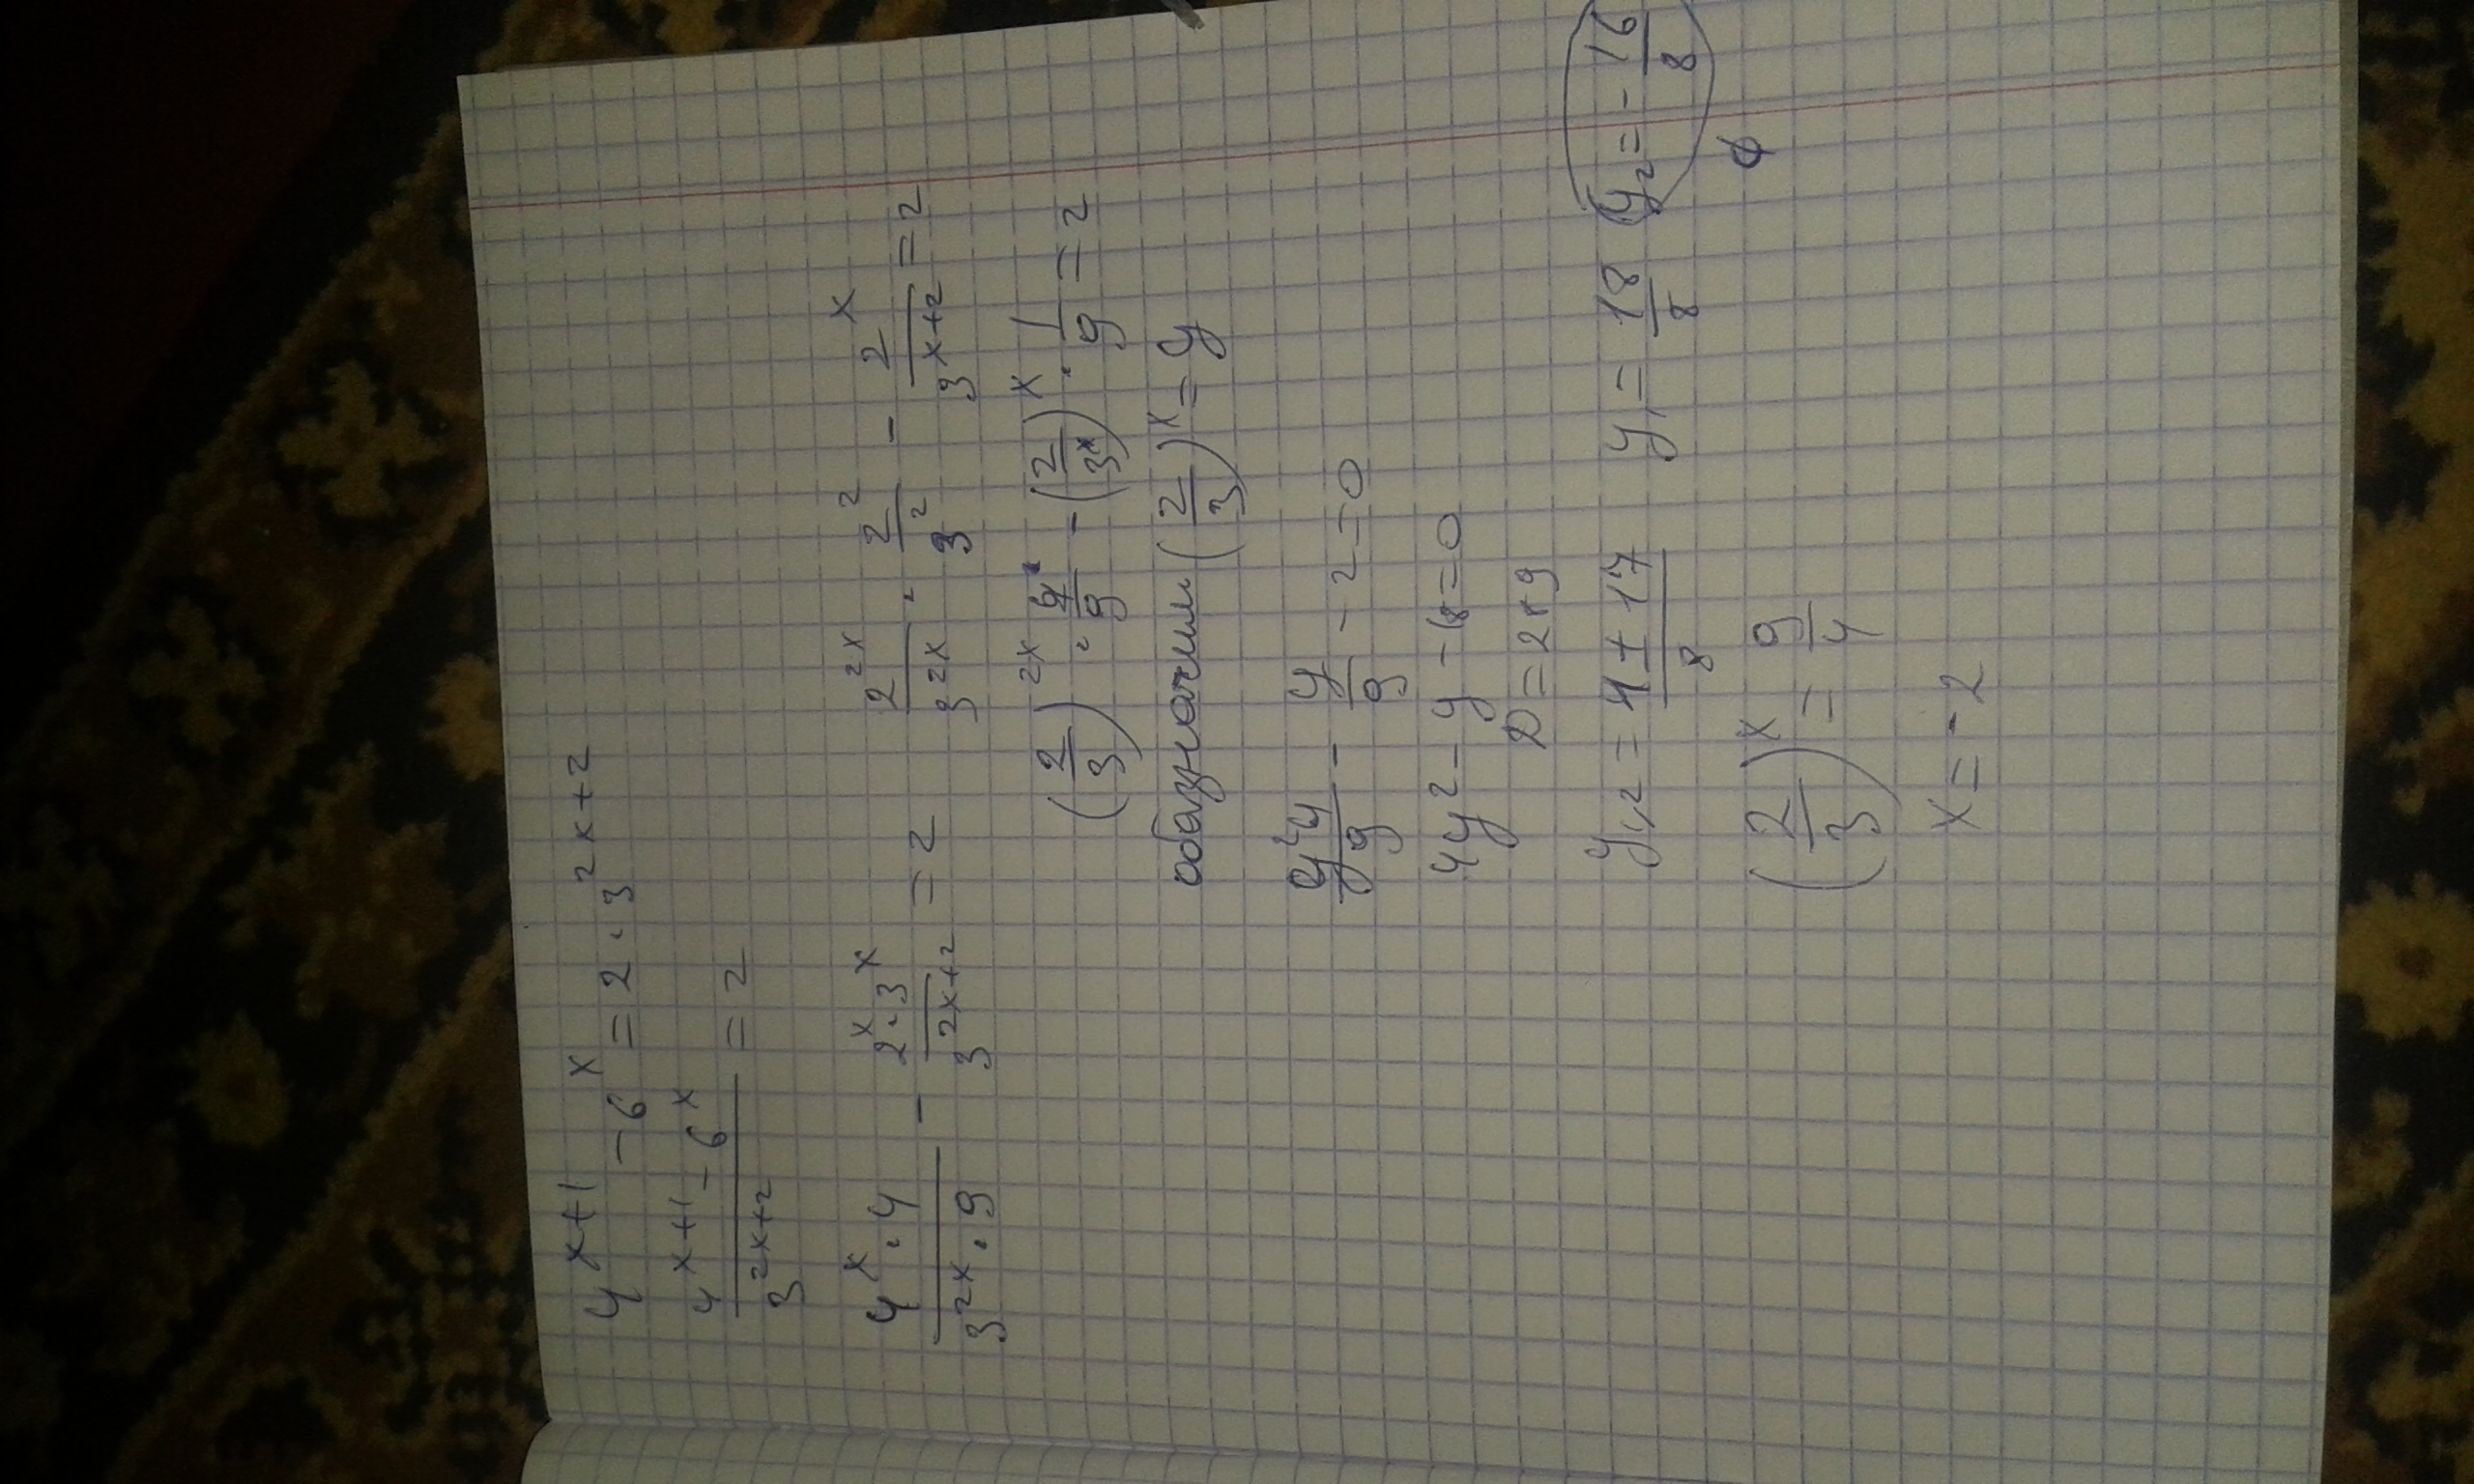 4^(x+1) - 6^x = 2 · 3^(2x+2)
(4^(x+1) - 6^x)/3^(2x+2) = 2
(4^x · 4)/(3^(2x) · 9) - (2^x · 3^x)/3^(2x+2) = 2
2^(2x)/3^(2x) · 2^2/3^2 - 2^x/3^(x+2) = 2
(2/3)^(2x) · 4/9 - (2/3)^x · 1/9 = 2
обазначим (2/3)^x = y
y^2 4/9 - y/9 - 2 = 0
4y^2 - y - 18 = 0
D = 289
y1,2 = (1 ± 17)/8 y1 = 18/8 y2 = - 16/8
∅
(2/3)^x = 9/4
x = -2